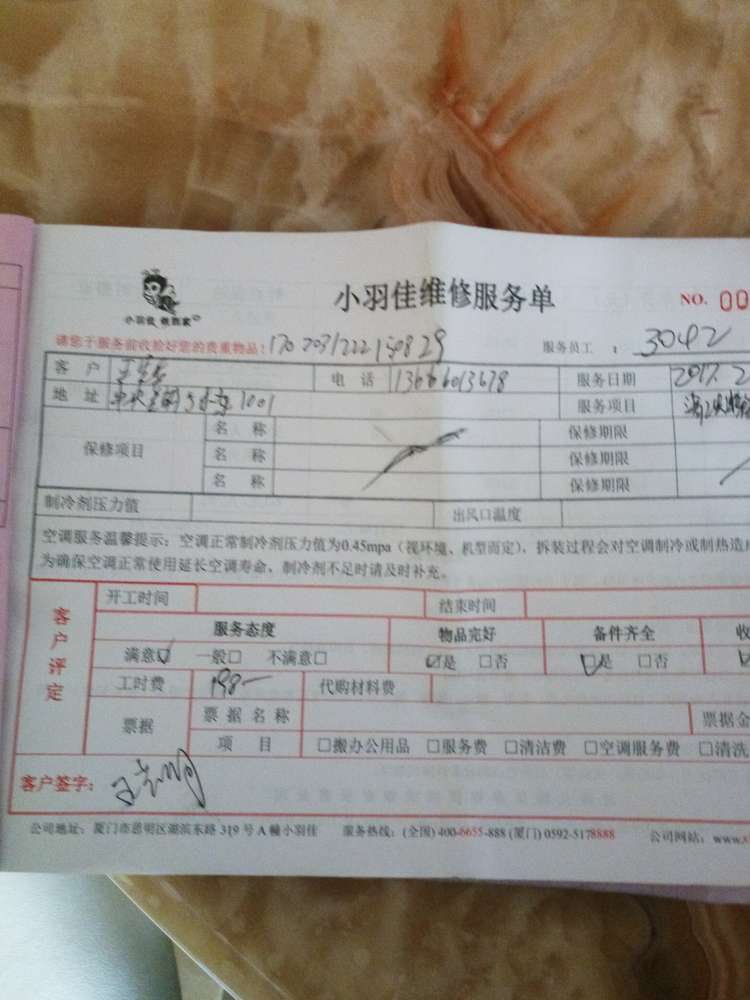 小羽佳 橡教家
小羽佳维修服务单
NO. 00
请您于服务前收验好您的贵重物品:
服务员工 : 3042
客 户 电 话 13666013678 服务日期 2017.2
地 址 1001 服务项目
保修项目 名 称 保修期限
名 称 保修期限
名 称 保修期限
制冷剂压力值 出风口温度
空调服务温馨提示：空调正常制冷剂压力值为0.45mpa（视环境、机型而定），拆装过程会对空调制冷或制热造
为确保空调正常使用延长空调寿命，制冷剂不足时请及时补充。
客户评定
开工时间 结束时间
服务态度 物品完好 备件齐全 收
满意☑ 一般□ 不满意□ ☑是 □否 ☑是 □否
工时费 198- 代购材料费
票据 票 据 名 称 票据金
项 目 □搬办公用品 □服务费 □清洁费 □空调服务费 □清洗
客户签字:
公司地址：厦门市思明区湖滨东路 319 号 A 幢小羽佳 服务热线：(全国) 400-6655-888 (厦门) 0592-5178888 公司网站：www.x